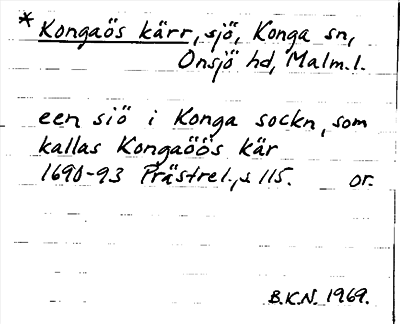 * Kongaös kärr, sjö, Konga sn,
Onsjö hd, Malm. l.
een siö i Konga sockn, som
kallas Kongaöös kär
1690-93 Prästrel., s 115. or.
B.K.N. 1969.